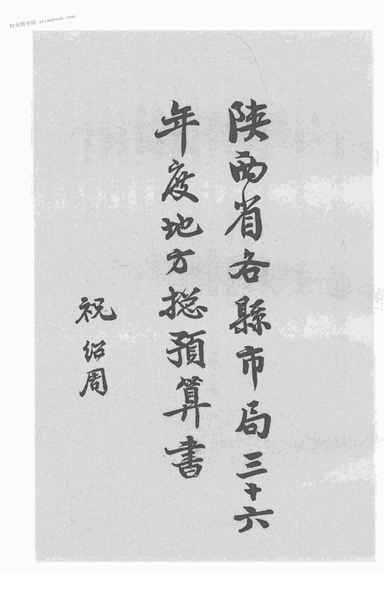 陝西省各縣市局三十六
年度地方總預算書
祝紹周